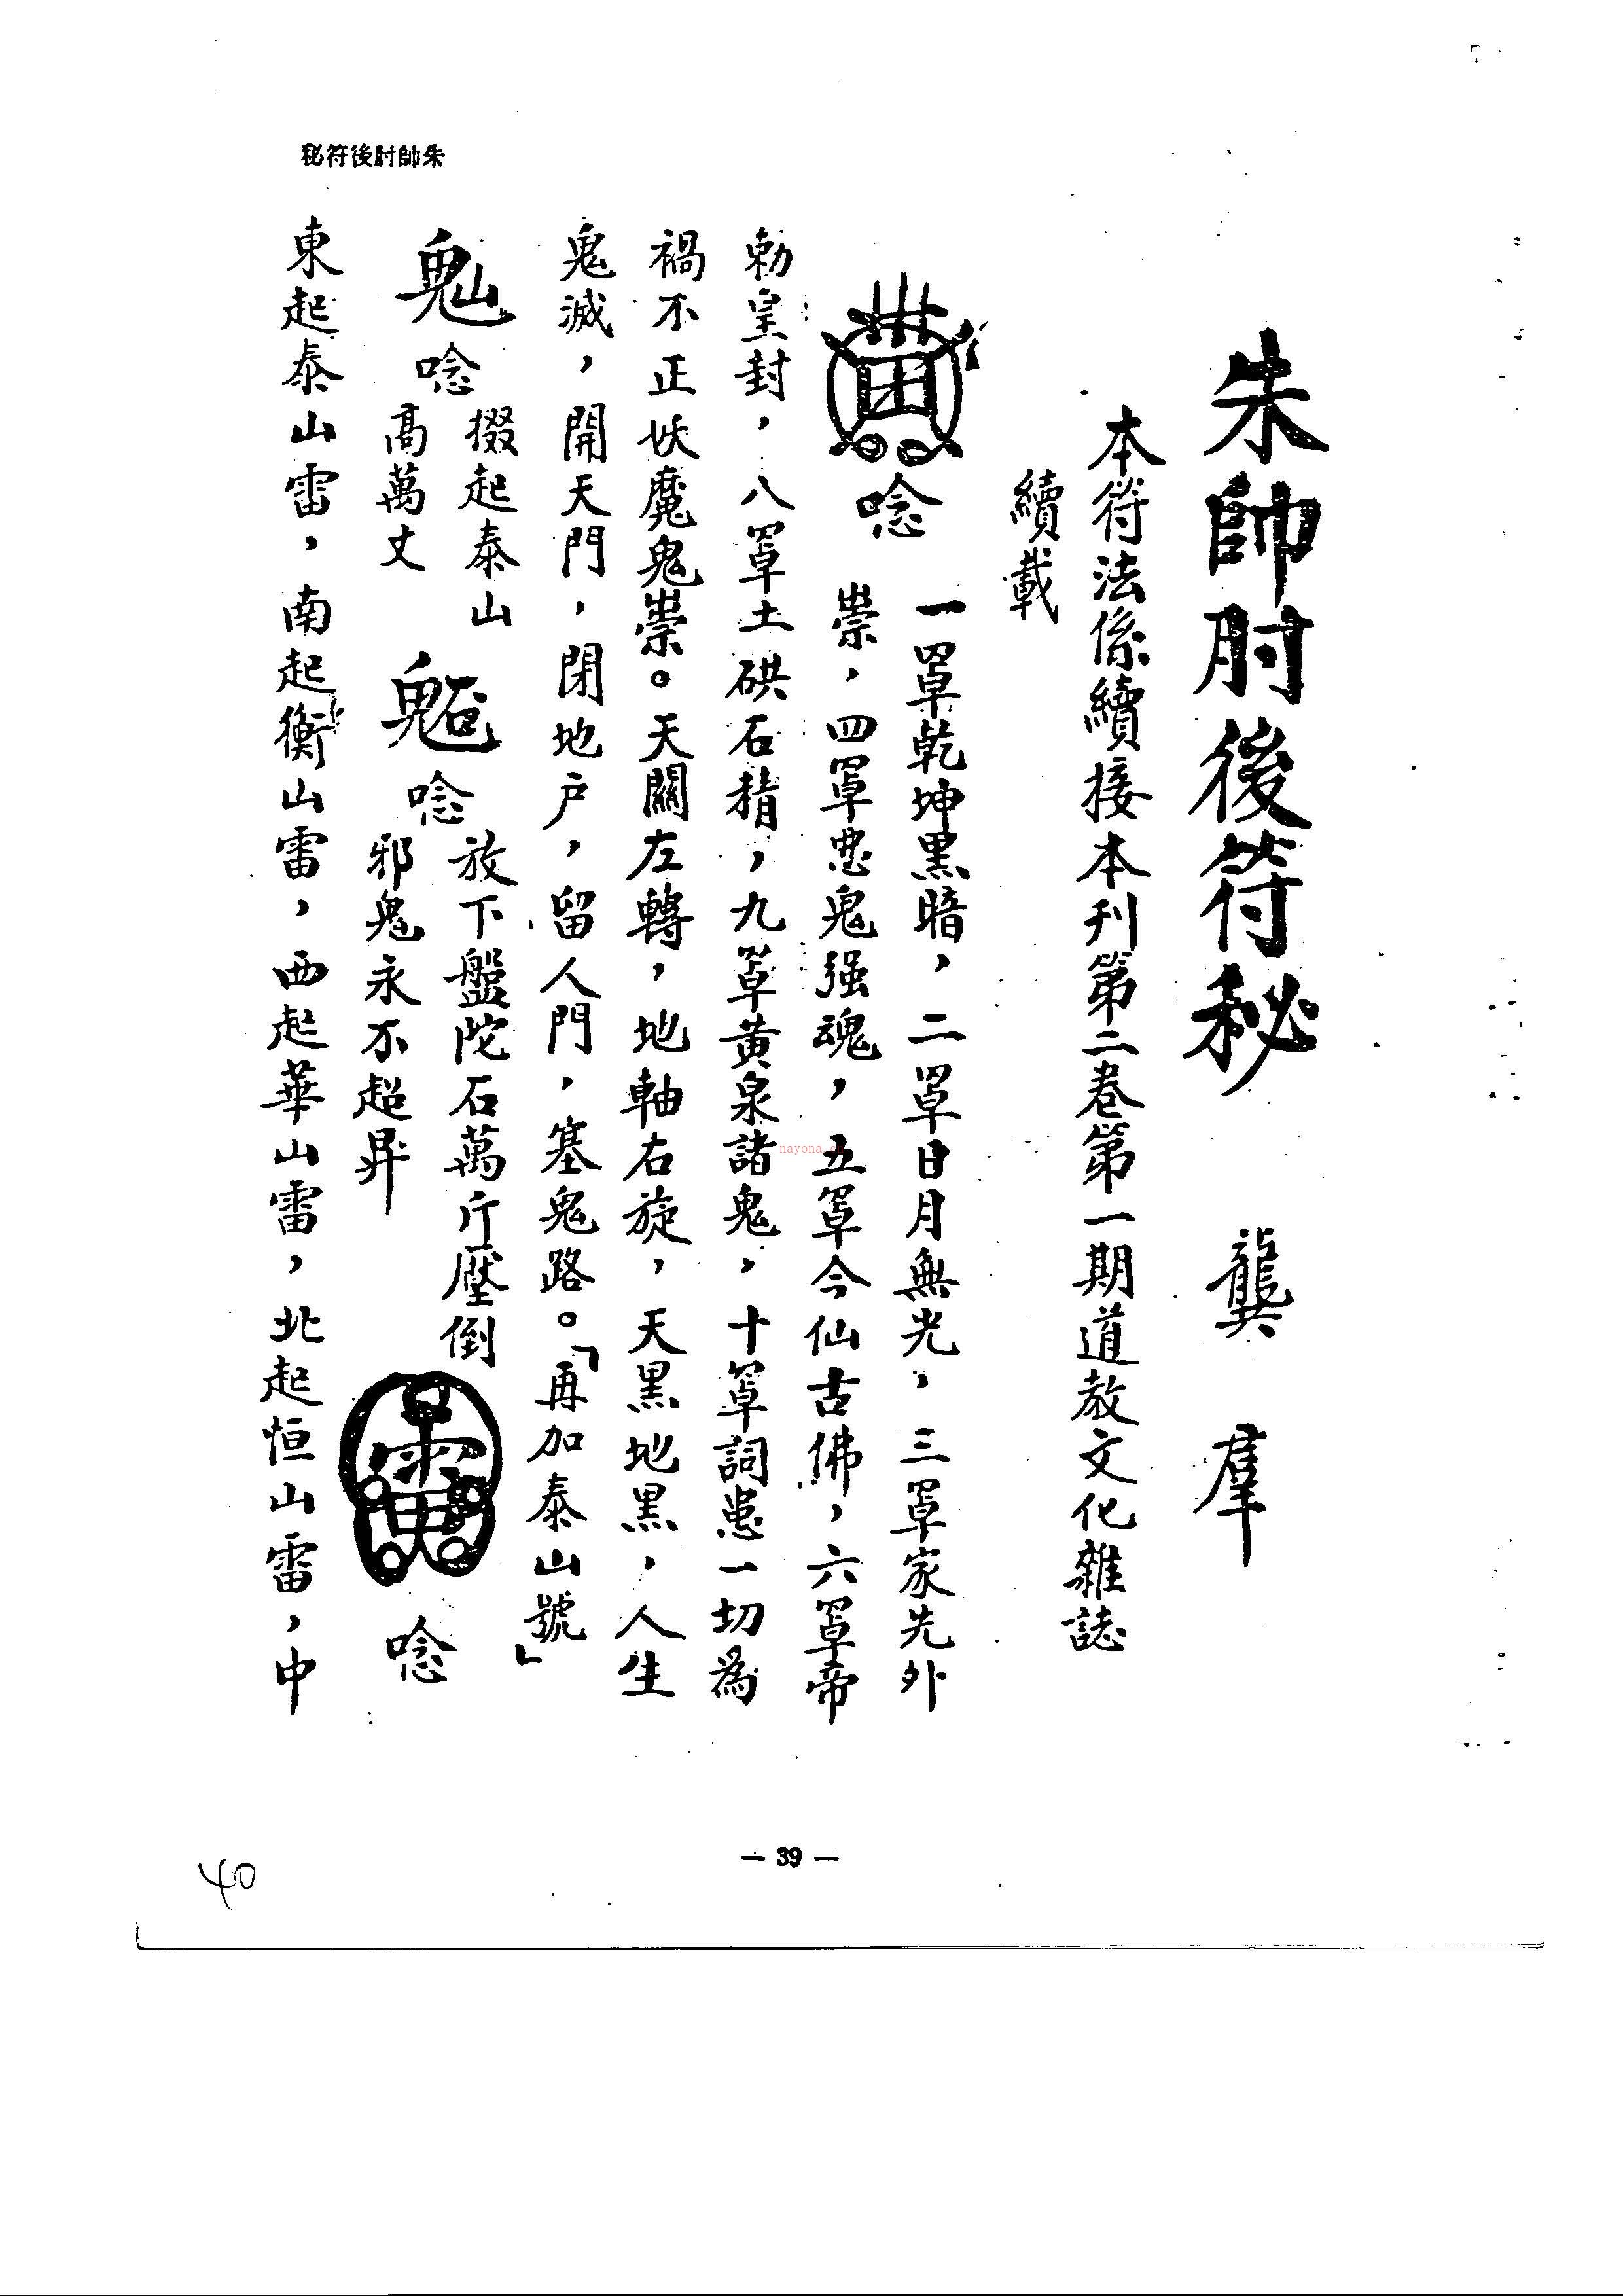 朱帥肘後符秘
朱帥肘後符秘　龔羣
本符法係續接本刊第二卷第一期道教文化雜誌
續載
唸
一罩乾坤黑暗，二罩日月無光，三罩家先外
祟，四罩惡鬼强魂，五罩今仙古佛，六罩帝
勅皇封，八罩土硔石精，九罩黃泉諸鬼，十罩詞患一切為
禍不正妖魔鬼祟。天關左轉，地軸右旋，天黑地黑，人生
鬼滅，開天門，閉地户，留人門，塞鬼路。「再加泰山號」
唸
掇起泰山
高萬丈
唸
放下盤陀石萬斤壓倒
邪鬼永不超昇
唸
東起泰山雷，南起衡山雷，西起華山雷，北起恒山雷，中
nayona
— 39 —
40